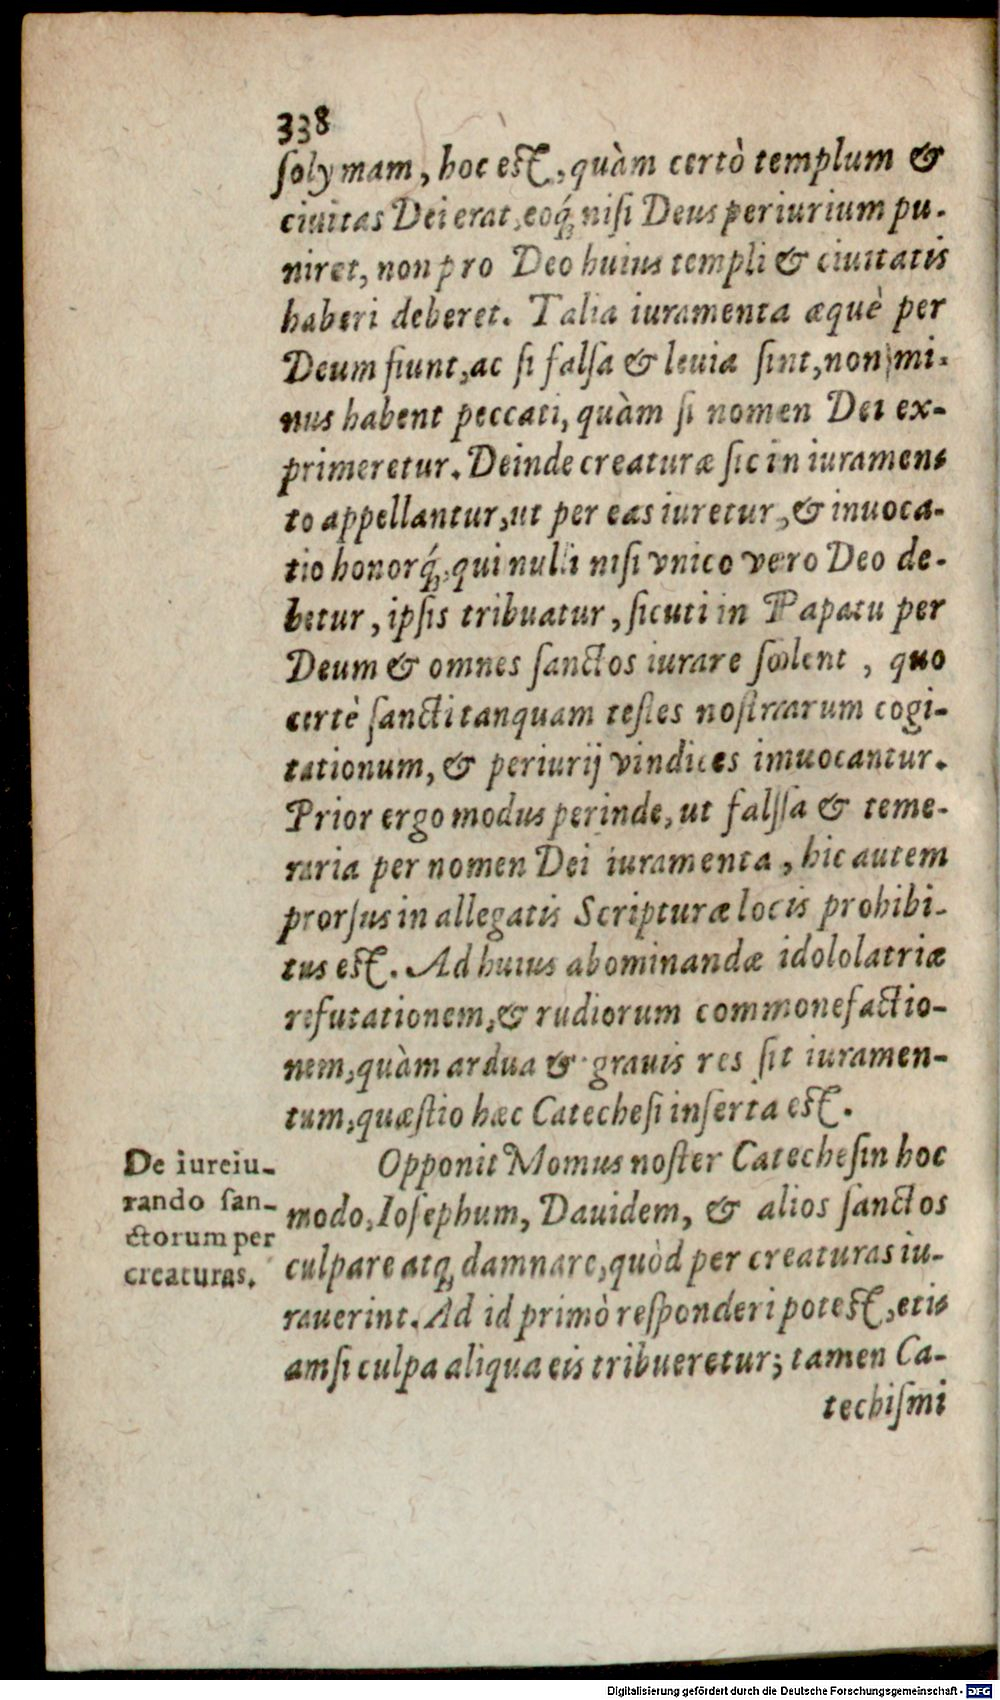 338
ſolymam, hoc eſt, quàm certò templum &
ciuitas Dei erat, eoq́; niſi Deus periurium pu-
niret, non pro Deo huius templi & ciuitatis
haberi deberet. Talia iuramenta æquè per
Deum fiunt, ac ſi falſa & leuia ſint, non mi-
nus habent peccati, quàm ſi nomen Dei ex-
primeretur. Deinde creaturæ ſic in iuramen-
to appellantur, ut per eas iuretur, & inuoca-
tio honorq́;, qui nulli niſi vnico vero Deo de-
betur, ipſis tribuatur, ſicuti in Papatu per
Deum & omnes ſanctos iurare ſolent, quo
certè ſancti tanquam teſtes noſtrarum cogi-
tationum, & periurij vindices inuocantur.
Prior ergo modus perinde, ut falſſa & teme-
raria per nomen Dei iuramenta, hic autem
prorſus in allegatis Scripturæ locis prohibi-
tus eſt. Ad huius abominandæ idololatriæ
refutationem, & rudiorum commonefactio-
nem, quàm ardua & grauis res ſit iuramen-
tum, quæſtio hæc Catecheſi inſerta eſt.
Opponit Momus noſter Catecheſin hoc
modo, Ioſephum, Dauidem, & alios ſanctos
culpare atq; damnare, quòd per creaturas iu-
rauerint. Ad id primò reſponderi poteſt, eti-
amſi culpa aliqua eis tribueretur; tamen Ca-
techiſmi
De iureiu-
rando ſan-
ctorum per
creaturas.
Digitalisierung gefördert durch die Deutsche Forschungsgemeinschaft - DFG